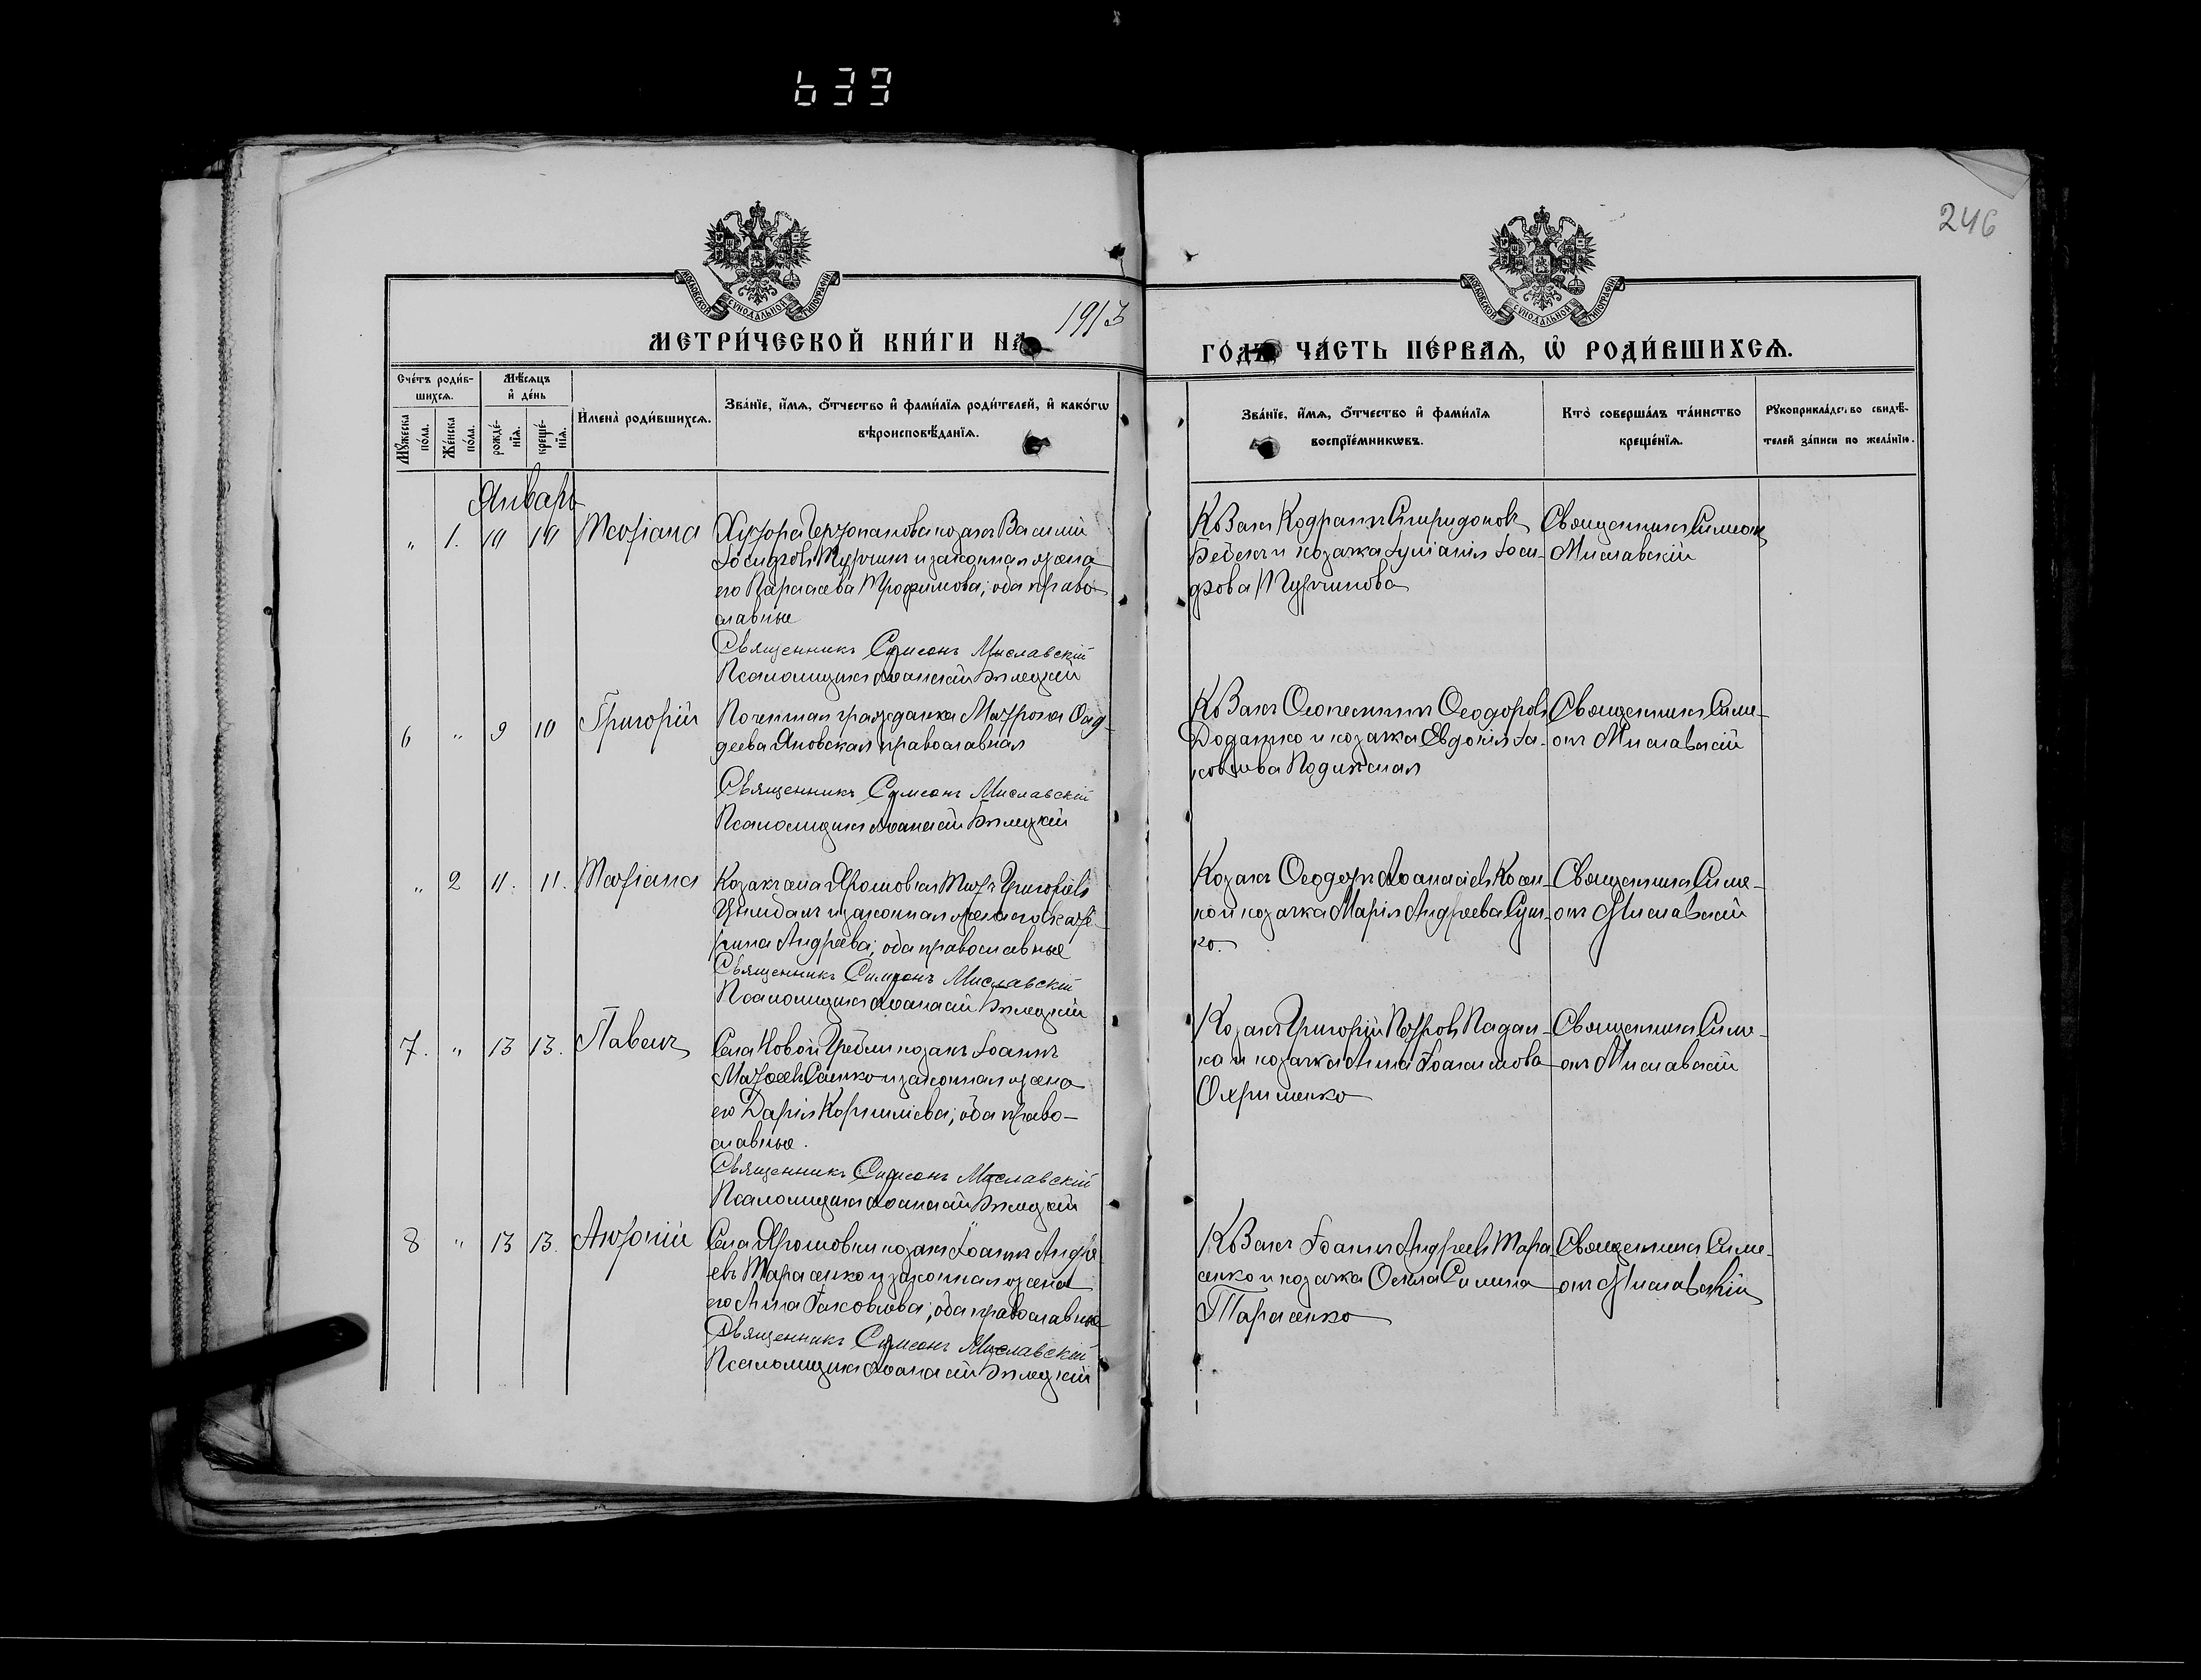 633
246
МОСКОВСКОЙ СУНОДАЛЬНОЙ ТИПОГРАФІИ
МОСКОВСКОЙ СУНОДАЛЬНОЙ ТИПОГРАФІИ
МЕТРИ́ЧЕСКОЙ КНИ́ГИ НА 1913
ГО́ДЪ, ЧА́СТЬ ПЕ́РВАЯ, Ѽ РОДИ́ВШИХСЯ.
Сче́тъ роди́в-
шихся.
Мѣ́сяцъ
и҆ де́нь
Мꙋ́жеска
по́ла.
Же́нска
по́ла.
рожде́-
нїя.
креще́-
нїя.
И҆мена̀ роди́вшихся.
Зва́нїе, и҆́мя, ѻ҆́тчество и҆ фами́лїя роди́телей, и҆ како́гѡ
вѣроисповѣ́данїя.
Зва́нїе, и҆́мя, ѻ҆́тчество и҆ фами́лїя
воспрїе́мникѡвъ.
Кто̀ соверша́лъ та́инство
креще́нїя.
Рꙋкоприкла́дство свидѣ́-
телей за́писи по жела́нїю.
Январь
„ 1. 19 Татіана
козакъ Василій
Іосифовъ Турчинъ и законная жена
его Параскева Трофимова; оба право-
славные
Священникъ Симеонъ Миславскій
Псаломщикъ Аѳанасій Бѣлецкій
Козакъ Спиридоновъ
и козачка Іосі-
фова Турчинова
Священникъ Симеонъ
Миславскій
6 „ 9 10 Григорій
Почетная гражданка Матрона Ѳад-
деева Яновская православная
Священникъ Симеонъ Миславскій
Псаломщикъ Аѳанасій Бѣлецкій
Козакъ Ѳеодоровъ
и козачка Евдокія Іа-
ковлева
Священникъ Симе-
онъ Миславскій
„ 2 11. 11. Татіана
Козакъ села Ярошовки Григоріевъ
и законная жена его Екате-
рина Андреева; оба православные
Священникъ Симеонъ Миславскій
Псаломщикъ Аѳанасій Бѣлецкій
Козакъ Ѳеодоръ Аѳанасіевъ Косен-
ко и козачка Марія Андреева Суш-
ко.
Священникъ Симе-
онъ Миславскій
7. „ 13 13. Павелъ
Села Новой Гребли козакъ Іоаннъ
Саенко и законная жена
его Дарія Корниліева; оба право-
славные.
Священникъ Симеонъ Миславскій
Псаломщикъ Аѳанасій Бѣлецкій
Козакъ Григорій Петровъ Падал-
ка и козачка Анна Іоаникова
Охрименко
Священникъ Симе-
онъ Миславскій
8 „ 13 13. Антоній
Села Ярошовки козакъ Іоаннъ Андре-
евъ Тарасенко и законная жена
его Анна Іаковлева; оба православные
Священникъ Симеонъ Миславскій
Псаломщикъ Аѳанасій Бѣлецкій
Козакъ Іоаннъ Андреевъ Тара-
сенко и козачка Симина
Тарасенко
Священникъ Симе-
онъ Миславскій